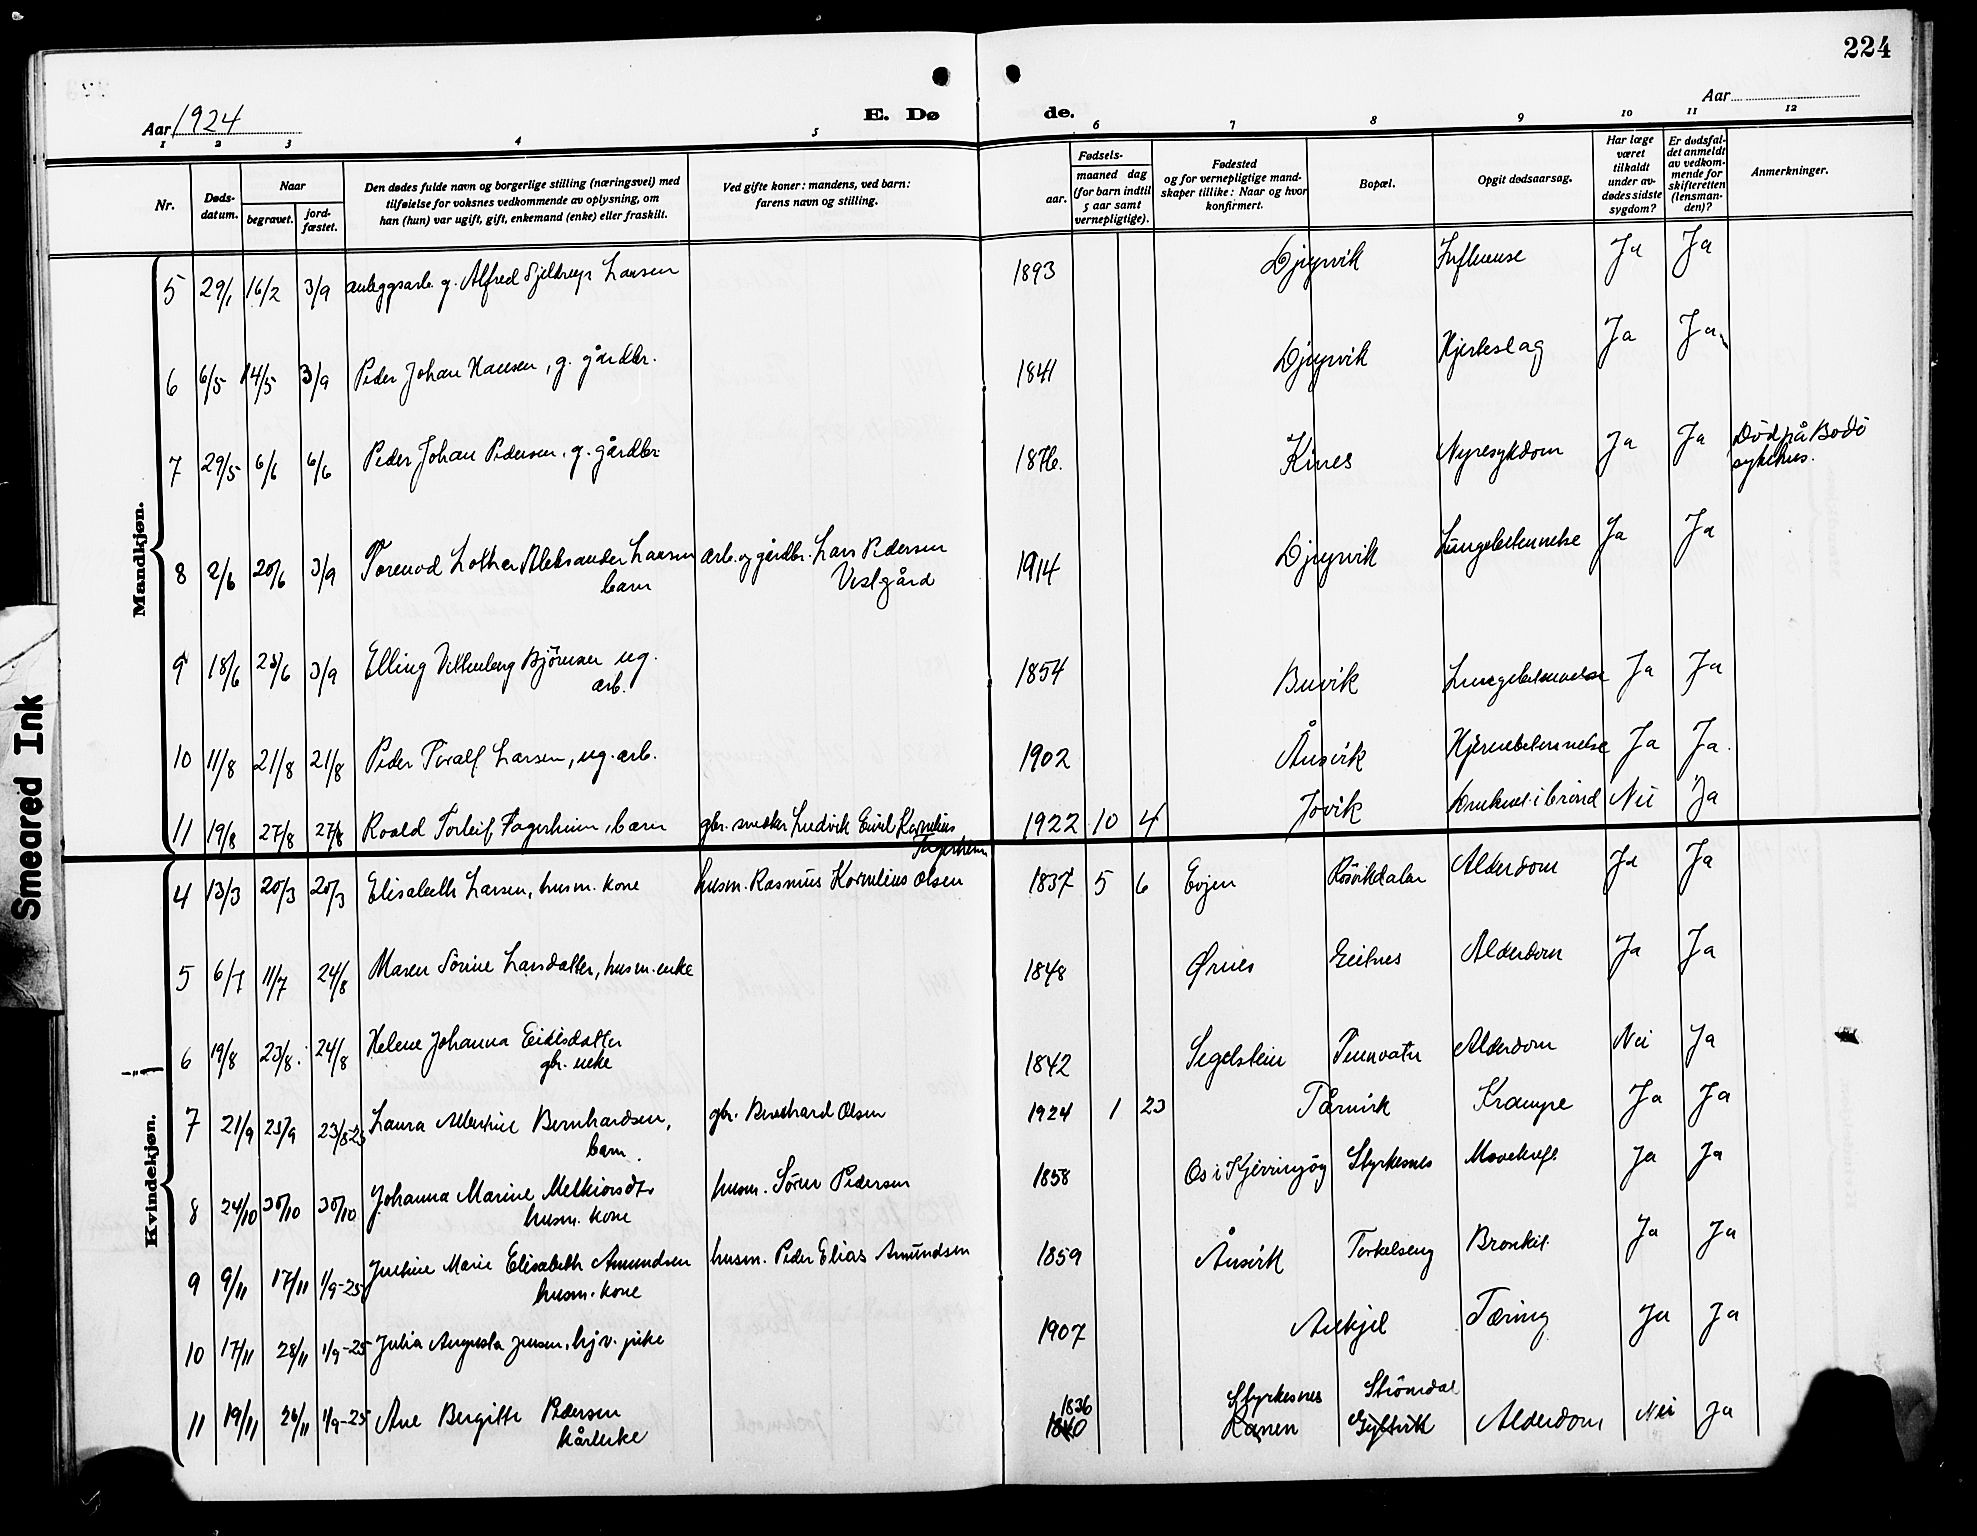 224
Aar 1924
E. Dø
de.
Aar
1 2 3 4 5 6 7 8 9 10 11 12
Nr.
Døds-
datum.
Naar
begravet.
jord-
fæstet.
Den dødes fulde navn og borgerlige stilling (næringsvei) med
tilføielse for voksnes vedkommende av oplysning, om
han (hun) var ugift, gift, enkemand (enke) eller fraskilt.
Ved gifte koner: mandens, ved barn:
farens navn og stilling.
Fødsels-
aar.
maaned dag
(for barn indtil
5 aar samt
vernepligtige).
Fødested
og for vernepligtige mand-
skaper tillike: Naar og hvor
konfirmert.
Bopæl.
Opgit dødsaarsag.
Har læge
været
tilkaldt
under av-
dødes sidste
sygdom?
Er dødsfal-
det anmeldt
av vedkom-
mende for
skifteretten
(lensman-
den)?
Anmerkninger.
Mandkjøn.
5 29/1 16/2 3/9 anleggsarb. g. Alfred Larsen 1893 Djupvik Influense Ja Ja
6 6/5 14/5 3/9 Peder Johan Hansen, g. gårdbr. 1841 Djupvik Hjerteslag Ja Ja
7 29/5 6/6 6/6 Peder Johan Pedersen. g. gårdbr. 1876. Kines Nyresykdom Ja Ja Død på Bodö
sykehus.
8 2/6 20/6 3/9 Tormod Lothar Aleksander Larsen arb. og gårdbr. Lars Pedersen 1914 Djupvik Lungebetennelse Ja Ja
barn Vestgård
9 18/6 25/6 3/9 Elling Bjørnsen ug. 1854 Buvik Lungebetennelse Ja Ja
arb.
10 11/8 21/8 21/8 Peder Toralf Larsen, ug. arb. 1902 Ånsvik Hjernebetennelse Ja Ja.
11 19/8 27/8 27/8 Roald Torleif Fagerheim, barn gbr. snekker Ludvik Emil Kornelius 1922 10 4 Jovik Druknet i brönd Nei Ja
Fagerheim
Kvindekjøn.
4 13/3 20/3 20/3 Elisabeth Larsen, husm. kone husm. Rasmus Kornelius Olsen 1837 5 6 Evjen Rösvikdalen Alderdom Ja Ja
5 6/7 11/7 24/8 Maren Sörine Larsdatter, husm. enke 1848 Ørnes Eiteres Alderdom Ja Ja
6 19/8 23/8. 24/8 Helene Johanna Eidisdatter 1842 Segelstein Tennvatn Alderdom Nei Ja
gbr. enke
7 21/9 25/9 23/8-25 Laura Albertine Bernhardsen, gbr. Bernhard Olsen 1924 1 23 Tårnvik Krampe Ja Ja
barn.
8 24/10 30/10 30/10 Johanna Marine Melkiorsdtr husm. Sören Pedersen 1858 Os i Kjerringöy Styrkesnes Mavekreft Ja Ja
husm. kone
9 9/11 17/11 1/9-25 Justine Marie Elisabeth Amundsen husm. Peder Elias Amundsen 1859 Ånsvik Torkelseng Bronkit Ja Ja
husm. kone
10 17/11 28/11 1/9-25 Julia Augusta Jensen, hjv. pike 1907 Aukjel Tæring Ja Ja
11 19/11 26/11 1/9-25 Ane Bergitte Pedersen 1836 Styrkesnes Strömdal Alderdom Nei Ja
kårenke 1840 Ranen
Smeared Ink